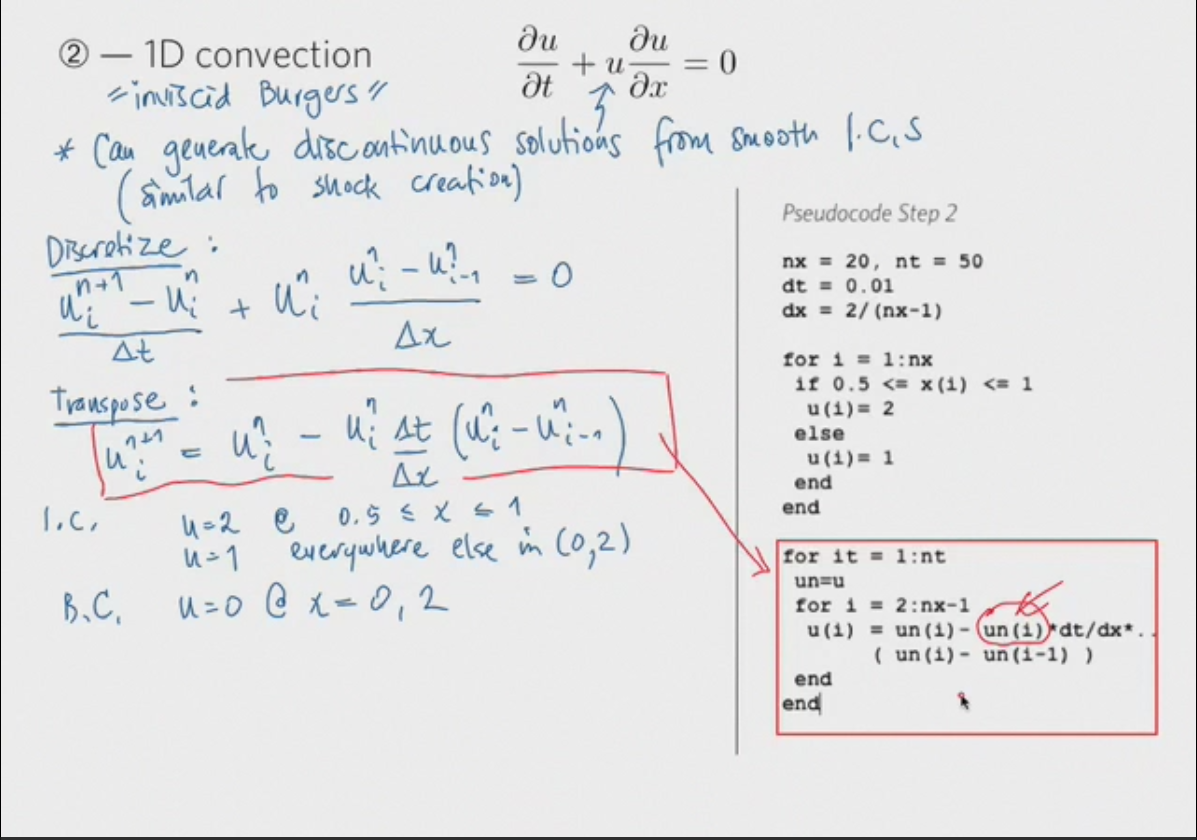 ② — 1D convection
∂u/∂t + u ∂u/∂x = 0
"inviscid Burgers"
* Can generate discontinuous solutions from smooth I.C.s
(similar to shock creation)
Discretize :
(u_i^{n+1} - u_i^n)/Δt + u_i^n (u_i^n - u_{i-1}^n)/Δx = 0
Transpose :
u_i^{n+1} = u_i^n - u_i^n Δt/Δx (u_i^n - u_{i-1}^n)
I.C. u=2 @ 0.5 ≤ x ≤ 1
u=1 everywhere else in (0,2)
B.C. u=0 @ x=0,2
Pseudocode Step 2
nx = 20, nt = 50
dt = 0.01
dx = 2/(nx-1)
for i = 1:nx
if 0.5 <= x(i) <= 1
u(i)= 2
else
u(i)= 1
end
end
for it = 1:nt
un=u
for i = 2:nx-1
u(i) = un(i)- un(i)*dt/dx*..
( un(i)- un(i-1) )
end
end